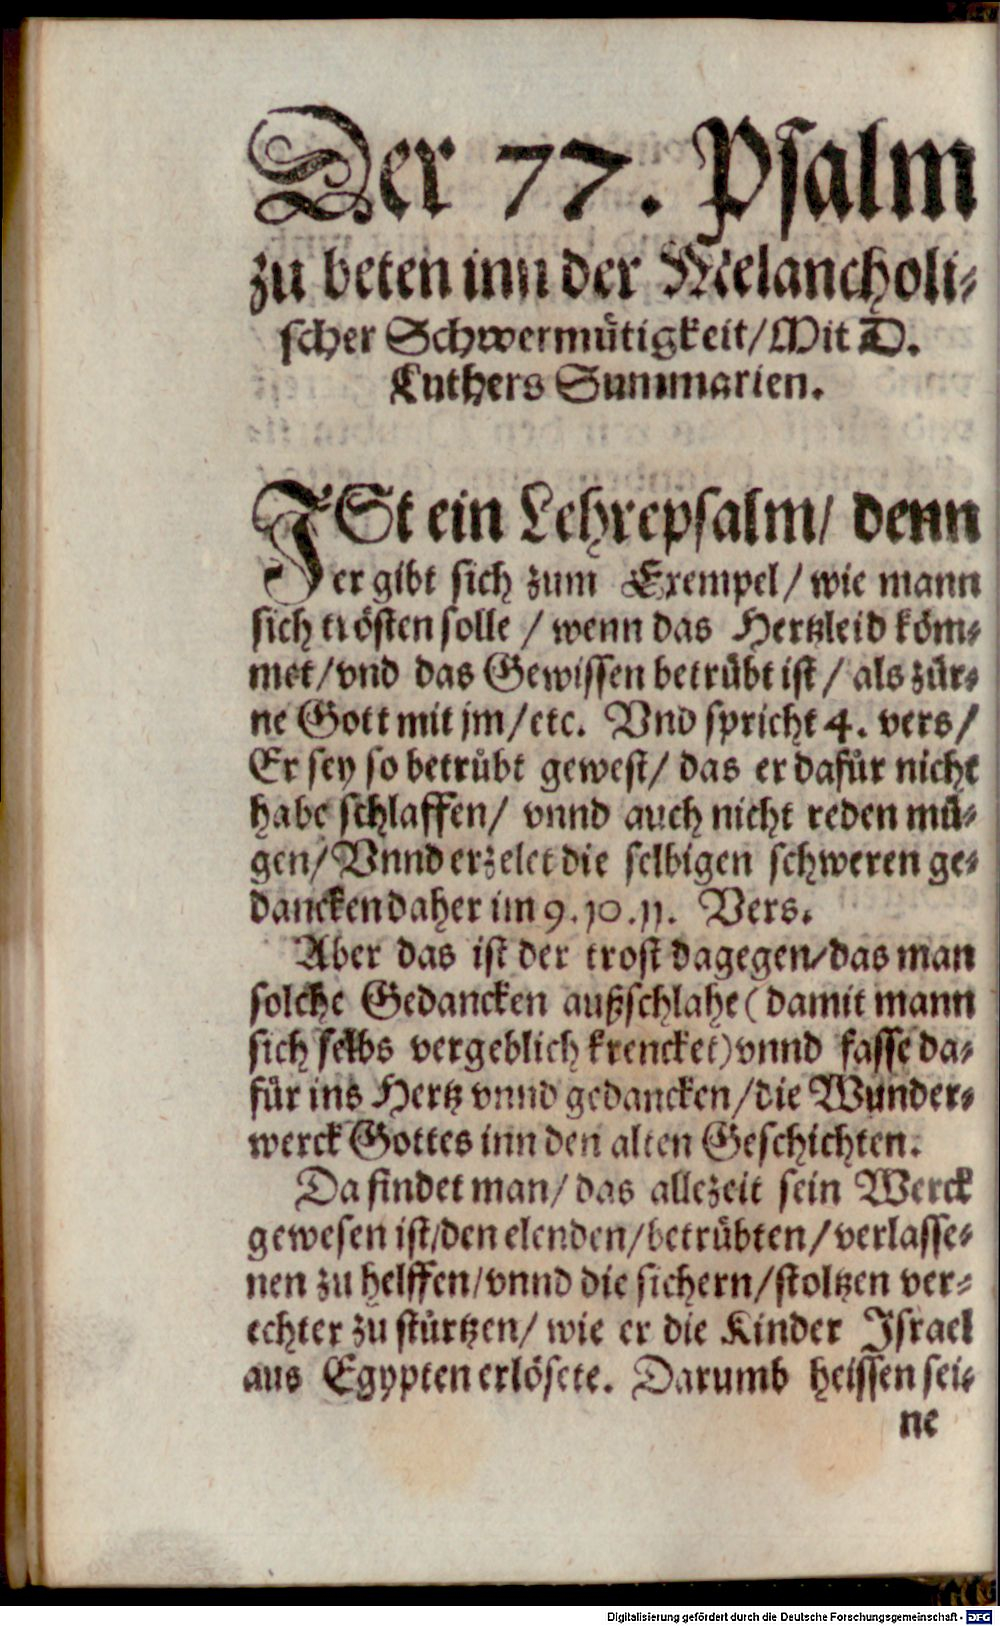 Der 77. Psalm
zu beten inn der Melancholi-
scher Schwermütigkeit/ Mit D.
Luthers Summarien.
ISt ein Lehrepsalm/ denn
er gibt sich zum Exempel/ wie mann
sich trösten solle / wenn das Hertzleid köm-
met/ vnd das Gewissen betrübt ist/ als zür-
ne Gott mit jm/ etc. Vnd spricht 4. vers/
Er sey so betrübt gewest/ das er dafür nicht
habe schlaffen/ vnnd auch nicht reden mü-
gen/ Vnnd erzelet die selbigen schweren ge-
dancken daher im 9. 10. 11. Vers.
Aber das ist der trost dagegen/ das man
solche Gedancken außschlahe (damit mann
sich selbs vergeblich krencket) vnnd fasse da-
für ins Hertz vnnd gedancken/ die Wunder-
werck Gottes inn den alten Geschichten.
Da findet man/ das allezeit sein Werck
gewesen ist/ den elenden/ betrübten/ verlasse-
nen zu helffen/ vnnd die sichern/ stoltzen ver-
echter zu stürtzen/ wie er die Kinder Israel
aus Egypten erlösete. Darumb heissen sei-
ne
Digitalisierung gefördert durch die Deutsche Forschungsgemeinschaft - DFG